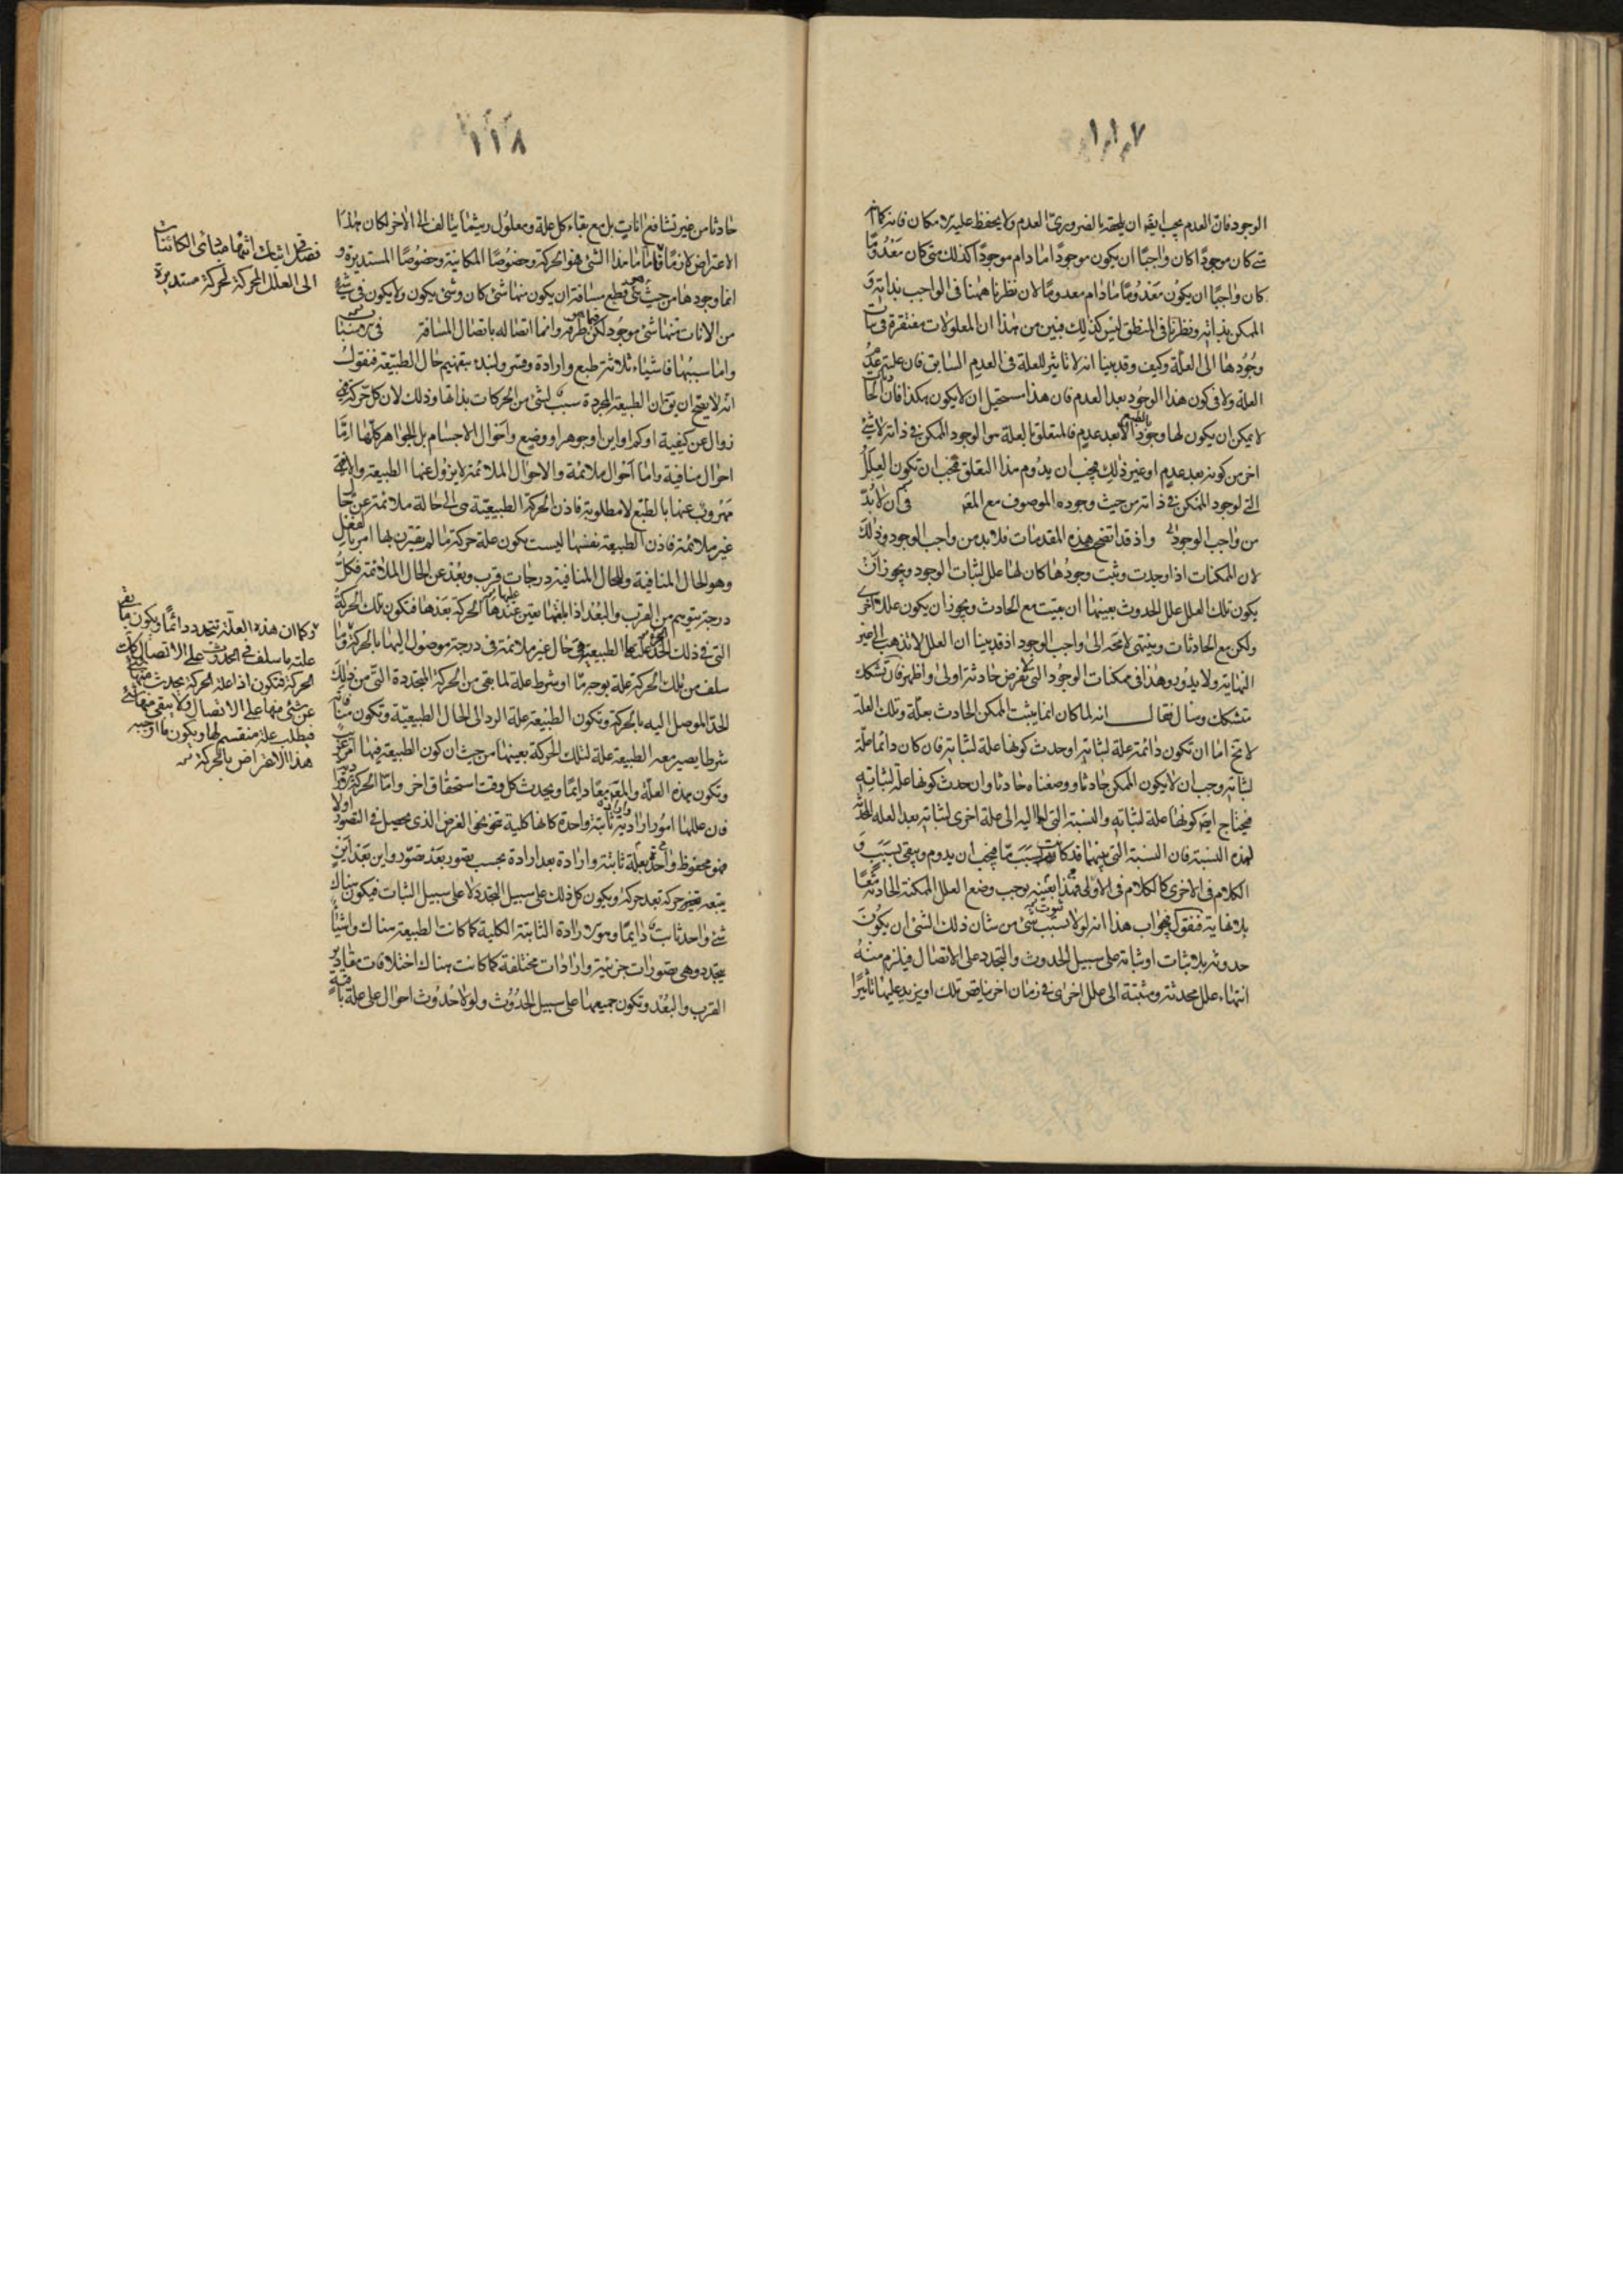 ١١٧
الوجود فان العدم يجب ايضه ان يلحقه بالضروري العدم ولا يحفظ عليه الامكان فانه كما انه
متى كان موجودًا كان واجبًا ان يكون موجودًا ما دام موجودًا كذلك متى كان معدومًا
كان واجبًا ان يكون معدومًا ما دام معدومًا لان نظرنا ههنا في الواجب بذاته و
الممكن بذاته ونظرنا في المنطق ليس كذلك فبين من هذا ان المعلولات مفتقرة في ثبات
وجودها الى العلة وكيف وقد بينا انه لا تاثير للعلة في العدم السابق فان علته عدم
العلة ولا في كون هذا الوجود بعد العدم فان هذا مستحيل ان لا يكون هكذا فان الحادثات
لا يمكن ان يكون لها وجود بالطبع الا بعد عدم فالمتعلق بالعلة هو الوجود الممكن في ذاته لا شئ
اخر من كونه بعد عدم او غير ذلك فيجب ان يدوم هذا التعلق فيجب ان تكون العلل
التي لوجود الممكن في ذاته من حيث وجوده الموصوف مع المعلول في ان لا بد
من واجب الوجود واذ قد اتضح هذه المقدمات فلا بد من واجب الوجود وذلك
لان الممكنات اذا وجدت وثبت وجودها كان لها علل لثبات الوجود ويجوز ان
يكون تلك العلل علل الحدوث بعينها ان بقيت مع الحادث ويجوز ان يكون عللا اخرى
ولكن مع الحادثات وينتهي لا محة الى واجب الوجود اذ قد بينا ان العلل لا تذهب الى غير
النهاية ولا يدور وهذا في ممكنات الوجود التي لا تفرض حادثة اولى واظهر فان تشكك
متشكك وسال فقال انه لما كان انما يثبت الممكن الحادث بعلة وتلك العلة
لا تخ اما ان تكون دائمة علة لثباته او حدث كونها علة لثباته فان كان دائما علة
لثباته وجب ان لا يكون الممكن حادثا ووضعناه حادثا وان حدث كونها علة لثباته
فيحتاج ايضه كونها علة لثباته والنسبة التي لها اليه الى علة اخرى لثباته بعد العلة المحدثة
لهذه النسبة فان النسبة التي بينهما قد كانت لسبب ما فيجب ان يدوم ويبقى بسبب و
الكلام في الاخرى كالكلام في الاولى فهذا بعينه يوجب وضع العلل الممكنة الحادثة معًا
بلا نهاية فنقول في جواب هذا انه لولا ثبوت سبب شئ من شان ذلك الشئ ان يكون
حدوثه بلا ثبات او ثباته على سبيل الحدوث والتجدد على الاتصال فيلزم منه
انتهاء علل محدثة ومثبتة الى علل اخرى في زمان اخر يناقض تلك او يزيد عليها تاثيرًا
١١٨
حادثا من غير تشافع انات بل مع بقاء كل علة ومعلول ريثما يتالف الى الاخر لكان هذا
الاعتراض لازمًا فاما ما هذا الشئ فهو الحركة وخصوصًا المكانية وخصوصًا المستديرة و
انما وجودها من حيث هي قطع مسافة ان يكون منها شئ كان وشئ يكون ولا يكون في شئ
من الانات منها شئ موجود لكن طرفه وانما اتصاله باتصال المسافة
واما سببها فاشياء ثلاثة طبع وارادة وقسر ولنبدء بتفهيم حال الطبيعة فنقول
انه لا يصح ان يق ان الطبيعة المجردة سبب لشئ من الحركات بذاتها وذلك لان كل حركة فهي
زوال عن كيفية او كم او اين او جوهر او وضع واحوال الاجسام بل الجواهر كلها اما
احوال منافية واما احوال ملائمة والاحوال الملائمة لا يزول عنها الطبيعة والا فهي
مهروب عنها بالطبع لا مطلوبة فاذن الحركة الطبيعية هي الى حالة ملائمة عن حالة
غير ملائمة فاذن الطبيعة نفسها ليست يكون علة حركة ما لم يقترن بها امر بالفعل
وهو الحال المنافية وللحال المنافية درجات قرب وبعد عن الحال الملائمة فكل
درجة يتوهم من القرب والبعد اذا بلغها يعين عندها الحركة بعدها فتكون تلك الحركة
التي في ذلك الجزء علتها الطبيعة في حال غير ملائمة في درجة موصول اليها بالحركة وما
سلف من تلك الحركة علة بوجه ما او شرط علة لما بقي من الحركة المتجددة التي من ذلك
الحد الموصل اليه بالحركة وتكون الطبيعة علة الرد الى الحال الطبيعية وتكون
شرطا يصير معه الطبيعة علة لتلك الحركة بعينها من حيث ان كون الطبيعة فيها امر غريب
وتكون هذه العلة والمعلول معًا دايمًا ويحدث كل وقت استحقاق اخر واما الحركة الارادية
فان عللها امور ارادية وارادة ثابتة واحدة كانها كلية تنحو نحو الغرض الذي يحصل في التصور اولا
فهو محفوظ واحد بعلة ثابتة وارادة بعد ارادة بحسب تصور بعد تصور واين بعد اين
يتبعه حركة بعد حركة ويكون كل ذلك على سبيل التجدد لا على سبيل الثبات فيكون هناك
شئ واحد ثابت دايمًا وهو الارادة الثابتة الكلية كما كانت الطبيعة هناك واشياء
يتجدد وهي تصورات جزئية وارادات مختلفة كما كانت هناك اختلافات مقادير
القرب والبعد وتكون جميعها على سبيل الحدوث ولولا حدوث احوال على علة باقية
الى العلل المحركة لحركة مستديرة
وكما ان هذه العلة تتجدد دائمًا ويكون ما بقي
علته ما سلف في الحدوث على الاتصال كانت
هذا الاعتراض بالحركة